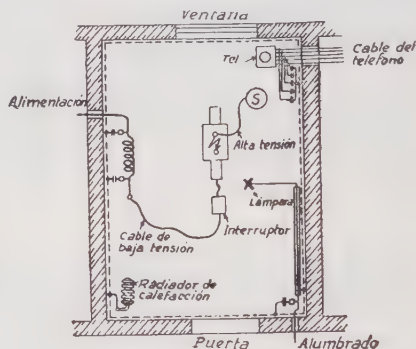 Ventana
Tel
Cable del
telefono
Alimentación
S
Alta tensión
Lámpara
Interruptor
Cable de
baja tensión
Radiador de
calefacción
Puerta
Alumbrado